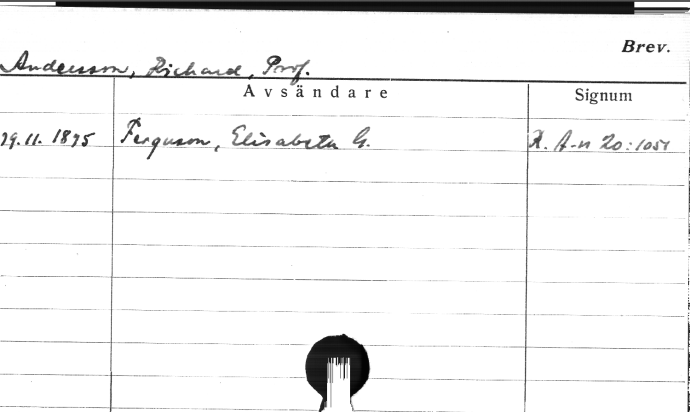 Brev.
Andersson, Richard, Prof.
Avsändare Signum
29.11.1895 Ferguson, Elisabeth G. A-n 20:1051